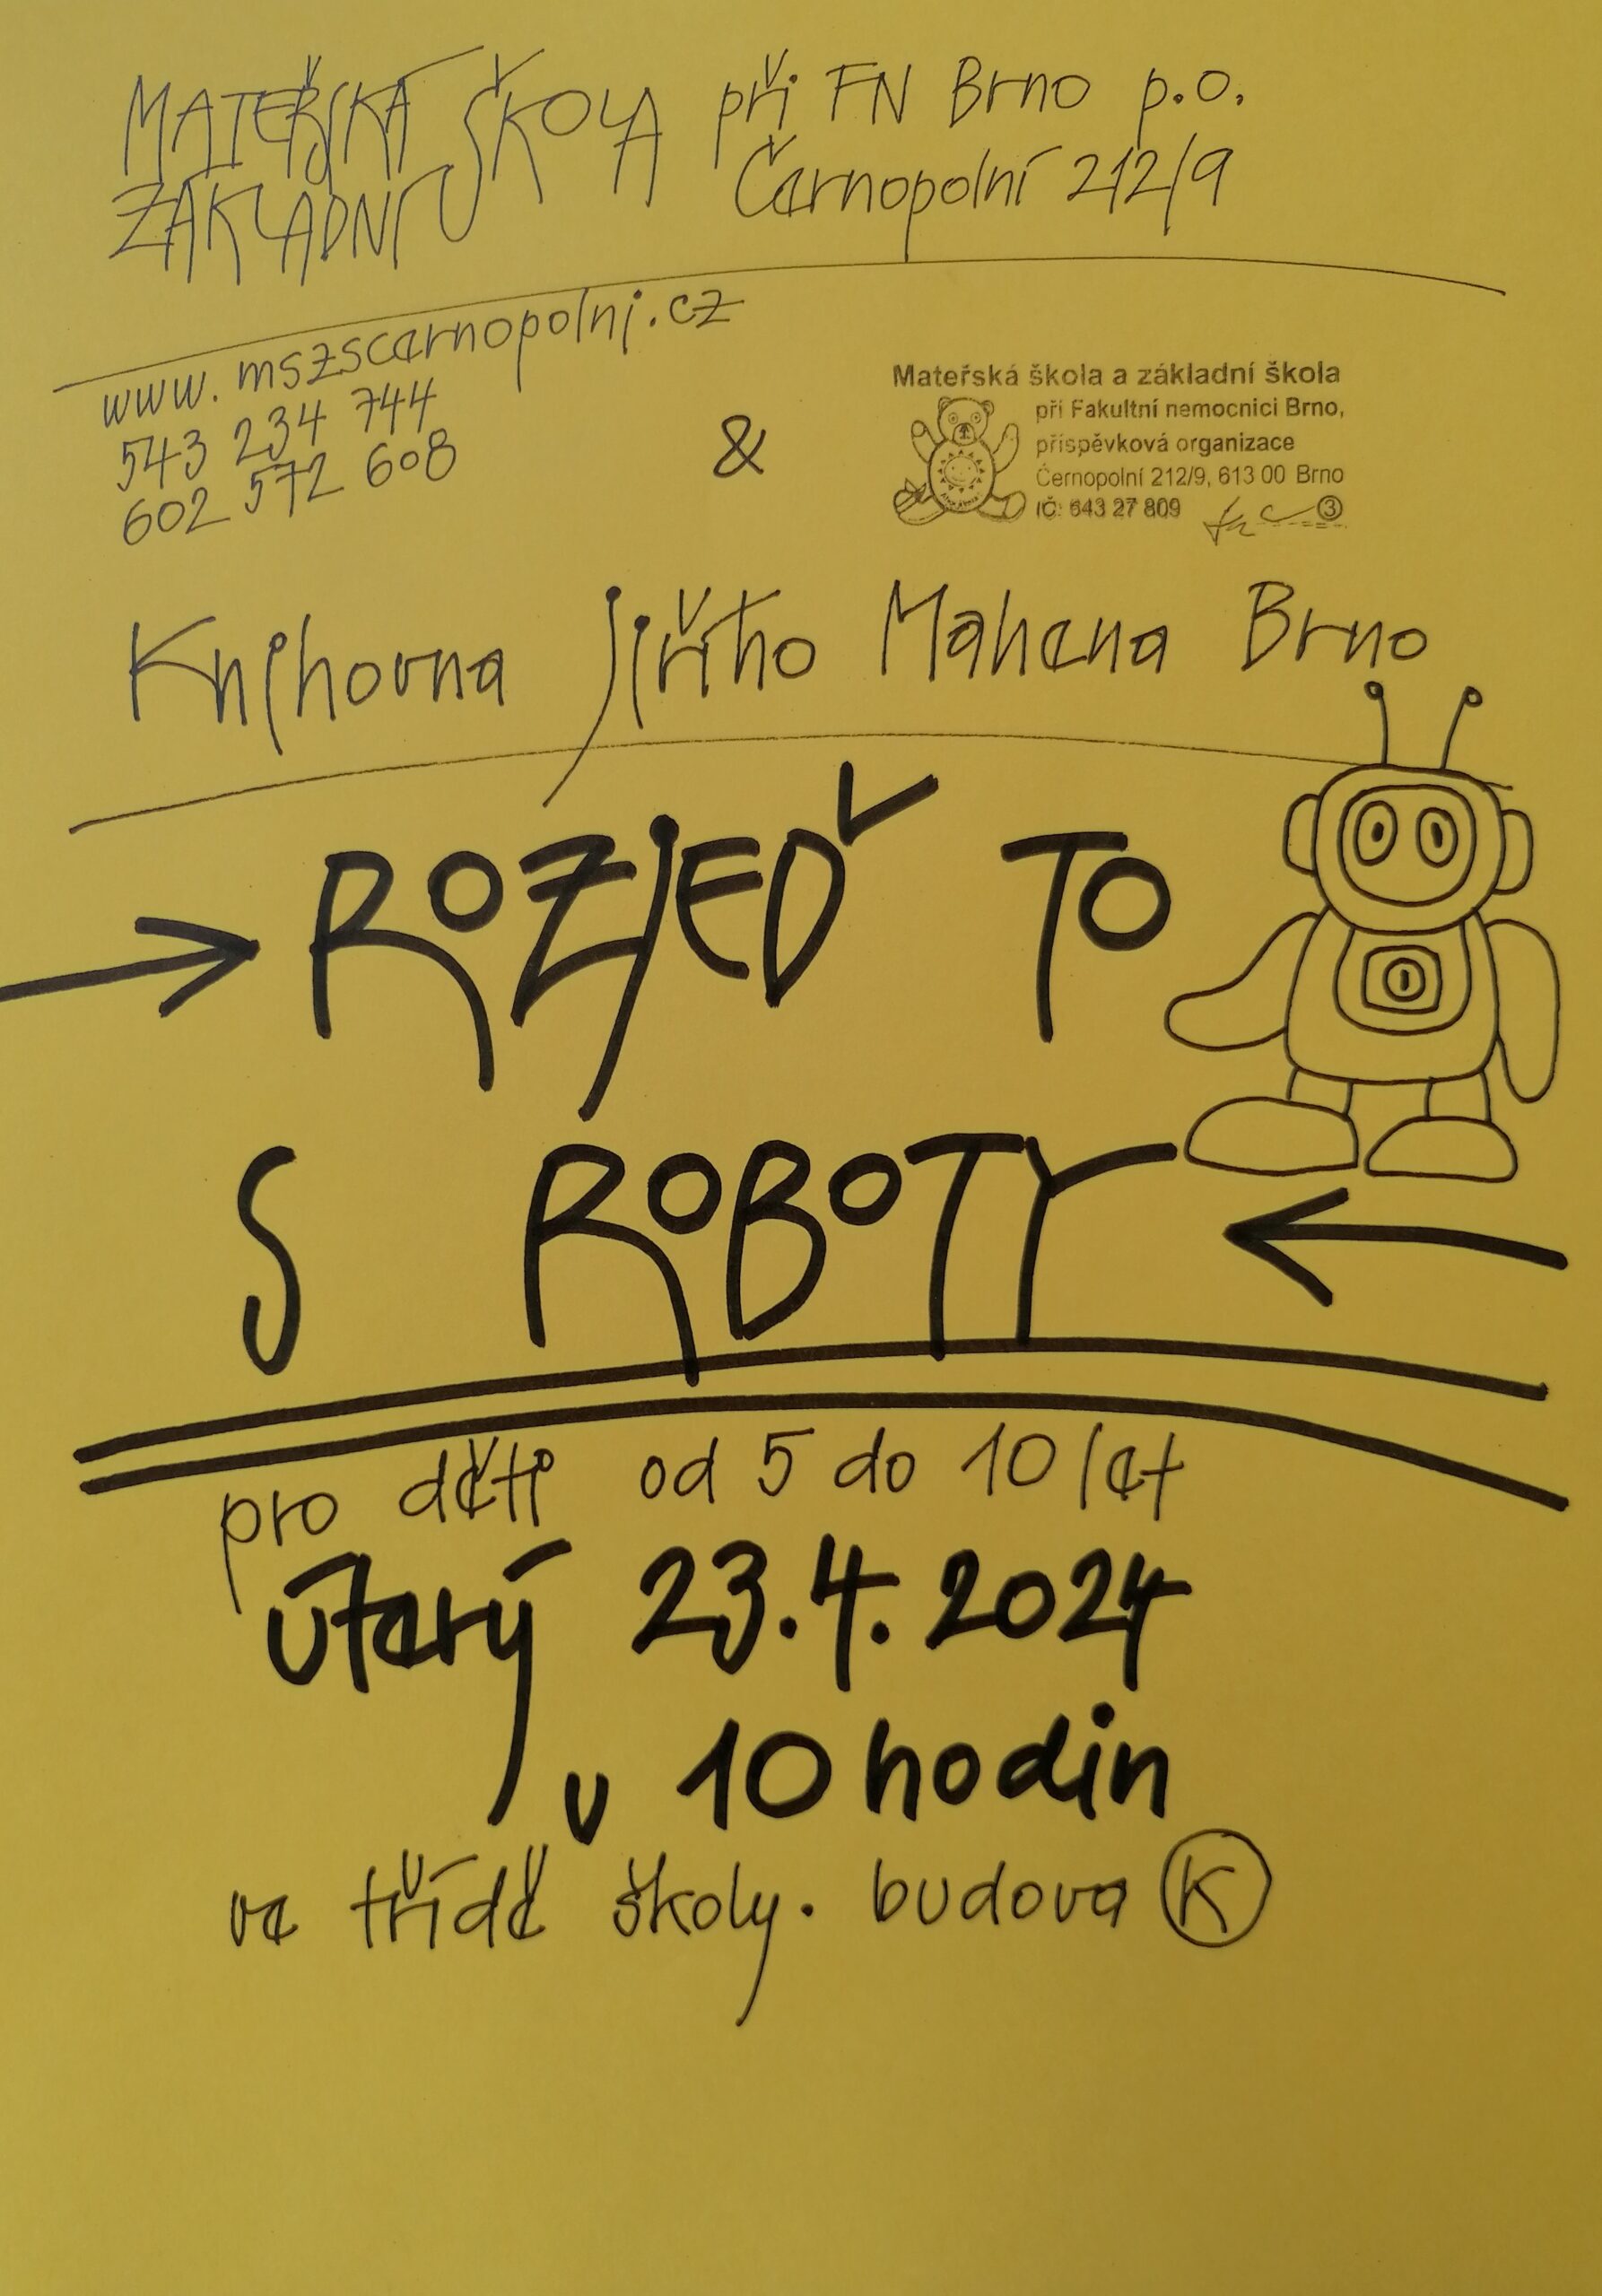 MATEŘSKÁ ŠKOLA při FN Brno p.o.
ZÁKLADNÍ Černopolní 212/9
www.mszscernopolni.cz
543 234 744
602 572 608
&
Mateřská škola a základní škola
při Fakultní nemocnici Brno,
příspěvková organizace
Černopolní 212/9, 613 00 Brno
IČ: 643 27 809 3
Knihovna Jiřího Mahena Brno
→ ROZJEĎ TO
S ROBOTY ←
pro děti od 5 do 10 let
úterý 23.4.2024
v 10 hodin
ve třídě školy. budova K